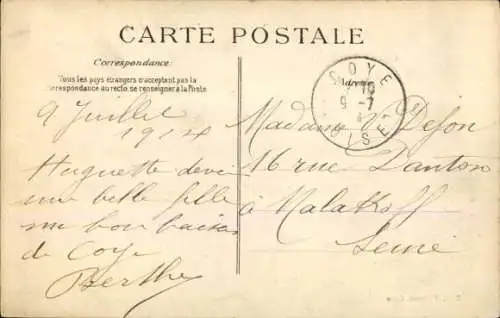 CARTE POSTALE
Correspondance:
Tous les pays étrangers n'acceptant pas la
correspondance au recto, se renseigner à la Poste
Adresse
COYE
9-7
OISE
9 Juillet
1914
Huguette devient
une belle fille
un bon baiser
de Coye
Berthe
Madame V. Dejon
16 rue Danton
à Malakoff
Seine